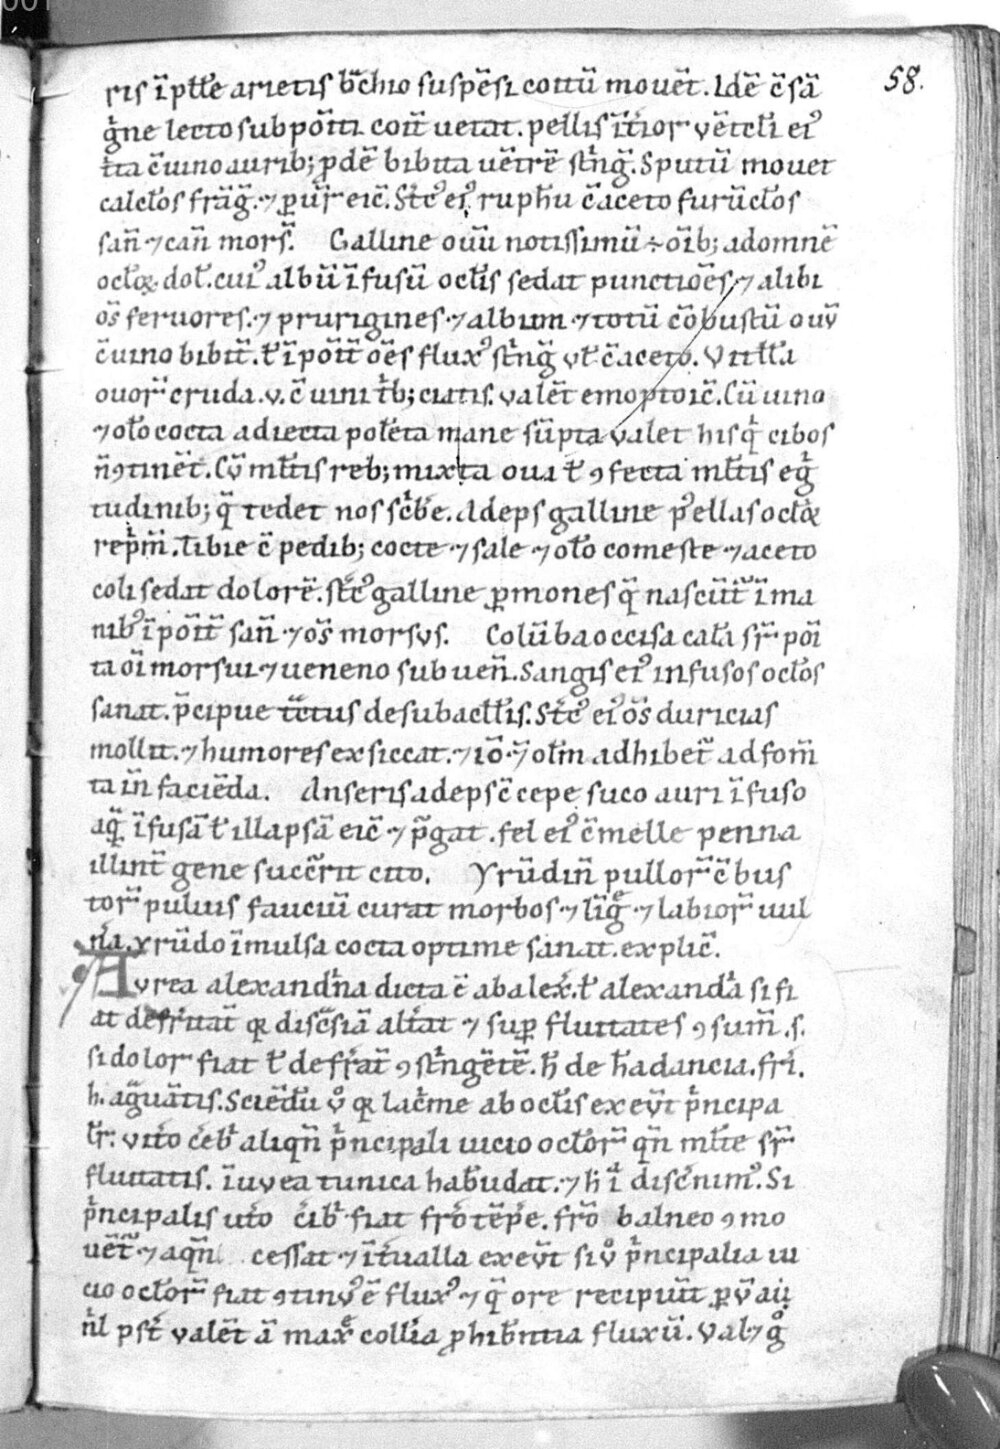 58.
ris ı̄ptłe arietis b̄chio suspēsi cottū mouēt. Idē c̄ sā
g̾ne lecto subpōıtı coıt̄ uetat. pellis ı̄t̾ıor vētc̄łı eı᾽
t̾ta c̄ uino aurib; ꝓdē bibita uētrē st̾ng̃. Sputū mouet
calcłos frā̃g. ⁊ p̱ur̃ eic̄. Stc᾽ eı᾽ ruphu c̄ aceto furūcłos
san̄ ⁊ can̄ mors̃. Galline ouū notissimū ÷ oı̄b; ad omnē
ocłoꝝ doł. cuı᾽ albū ı̄fusū ocłis sedat punctiōes ⁊ alibi
os̄ feruores. ⁊ prurigines ⁊ album ⁊ totū c̄obustū ouū
c̄ uino bibit̄. ł ı̄pōıt̄ oēs flux᾽ st̾ng̃ vł c̄ aceto. Vitełła
ouor̃ cruda .v. c̄ uini t̾b; ciatis. valēt emoptoic̄. Cū uino
⁊ ołeo cocta adiecta połēta mane sūpta valet his q̾ cibos
n̄ ꝯtinēt. Cū młtis reb; mixta oua ł ꝯfecta młtis eg̾
tudinib; q̃ tedet nos sc̾b̄e. Adeps galline p᾽ellas ocłoꝝ
rep̾m̄. Tibie c̄ pedib; cocte ⁊ sale ⁊ ołeo comeste ⁊ aceto
coli sedat dolorē. stc᾽ galline ꝑmones q̃ nascūt̃ ı̄ ma
nib᾽ ı̄pōıt̄ san̄ ⁊ os̄ morsus. Colūba occisa cał̄ı sr̃ pōı
ta oı̄ morsui ⁊ ueneno subuen̄. Sangis eı᾽ infusos ocłos
sanat. p̄cipue ictus de subactłis. Stc᾽ eı᾽ os̄ duricias
mollit. ⁊ humores exsiccat. ⁊ ıō ⁊ ołm adhibet̃ ad fom̄
ta ın̄ faciēda. Anseris adeps c̄ cepe suco auri ı̄fuso
aq̃ ı̄fusā ł illapsā eic̄ ⁊ p̃gat. fel eı᾽ c̄ melle penna
illint̄ gene succ̄rit cito. Yrūdin̄ pullor̃ c̄bus
tor̃ puluis fauciū curat morbos ⁊ lı̄g̊ ⁊ labior̃ uul
n̾a. yrūdo ı̄ mulsa cocta optime sanat. explic̄.
Avrea alexand̾na dicta c̄ ab alex̾. ł alexand̾a si fi
at ꝙ disc̄siā alt̾at ⁊ suꝑ fluitates ꝯsum̄. s.
si dolor fiat ł deffr̾at̃ ꝯst̾ngētē. h̄ de h̾adancia. fri.
h. ag̃uātis. Sciēdū v̊ ꝙ lac̾me ab ocłis exeūt p̾ncipa
lr̃: vito ceb̾ aliqn̄ p̾ncipali uicio ocłor̃ qn̄ młte sr̃
fluitatis. ı̄ uvea tunica habūdat. ⁊ h̾ ı̾ disc̾nim᾽. Si
p̾ncipalis uito c̾ib̾ fiat fro᾽ tēpe. fro᾽ balneo ꝯmo
uēt̃ ⁊ aqn̄ cessat ⁊ ı̄t̾ualla exeūt si v̊ p̾ncipalia ui
cio ocłor̃ fiat ꝯtinu᾽ ē flux᾽ ⁊ q̃ ore recipiūt̄
n̾l pst̾ valēt ā max̾ collı̾a ꝓhibn̄tia fluxū.